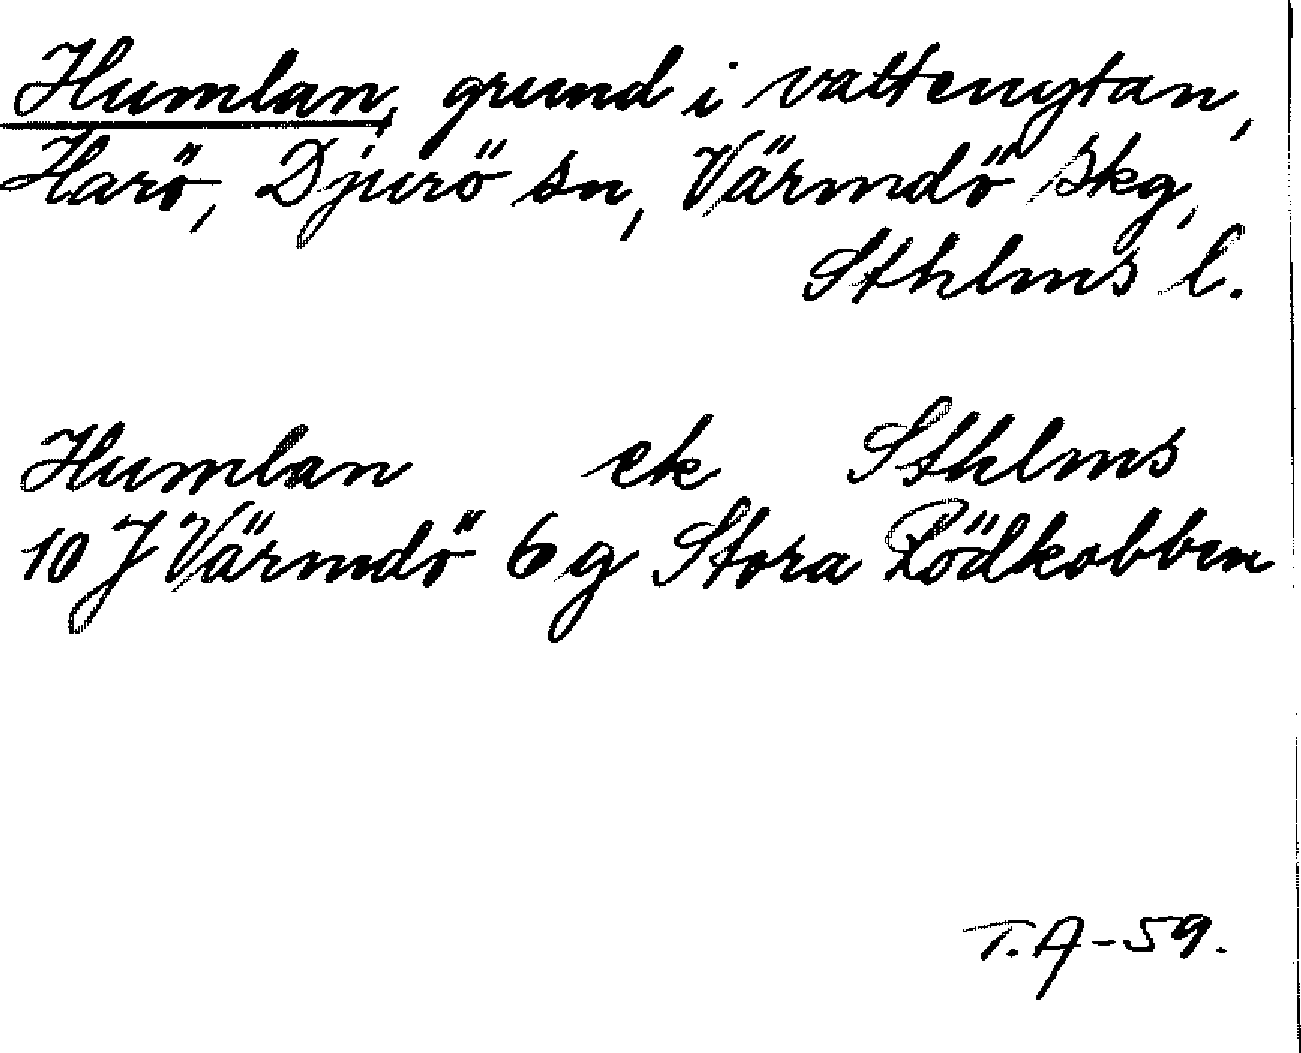 Humlan, grund i vattenytan,
Harö, Djurö sn, Värmdö skg,
Sthlms l.
Humlan ek Sthlms
10 J Värmdö 6 g Stora Rödkobben
T.A-59.